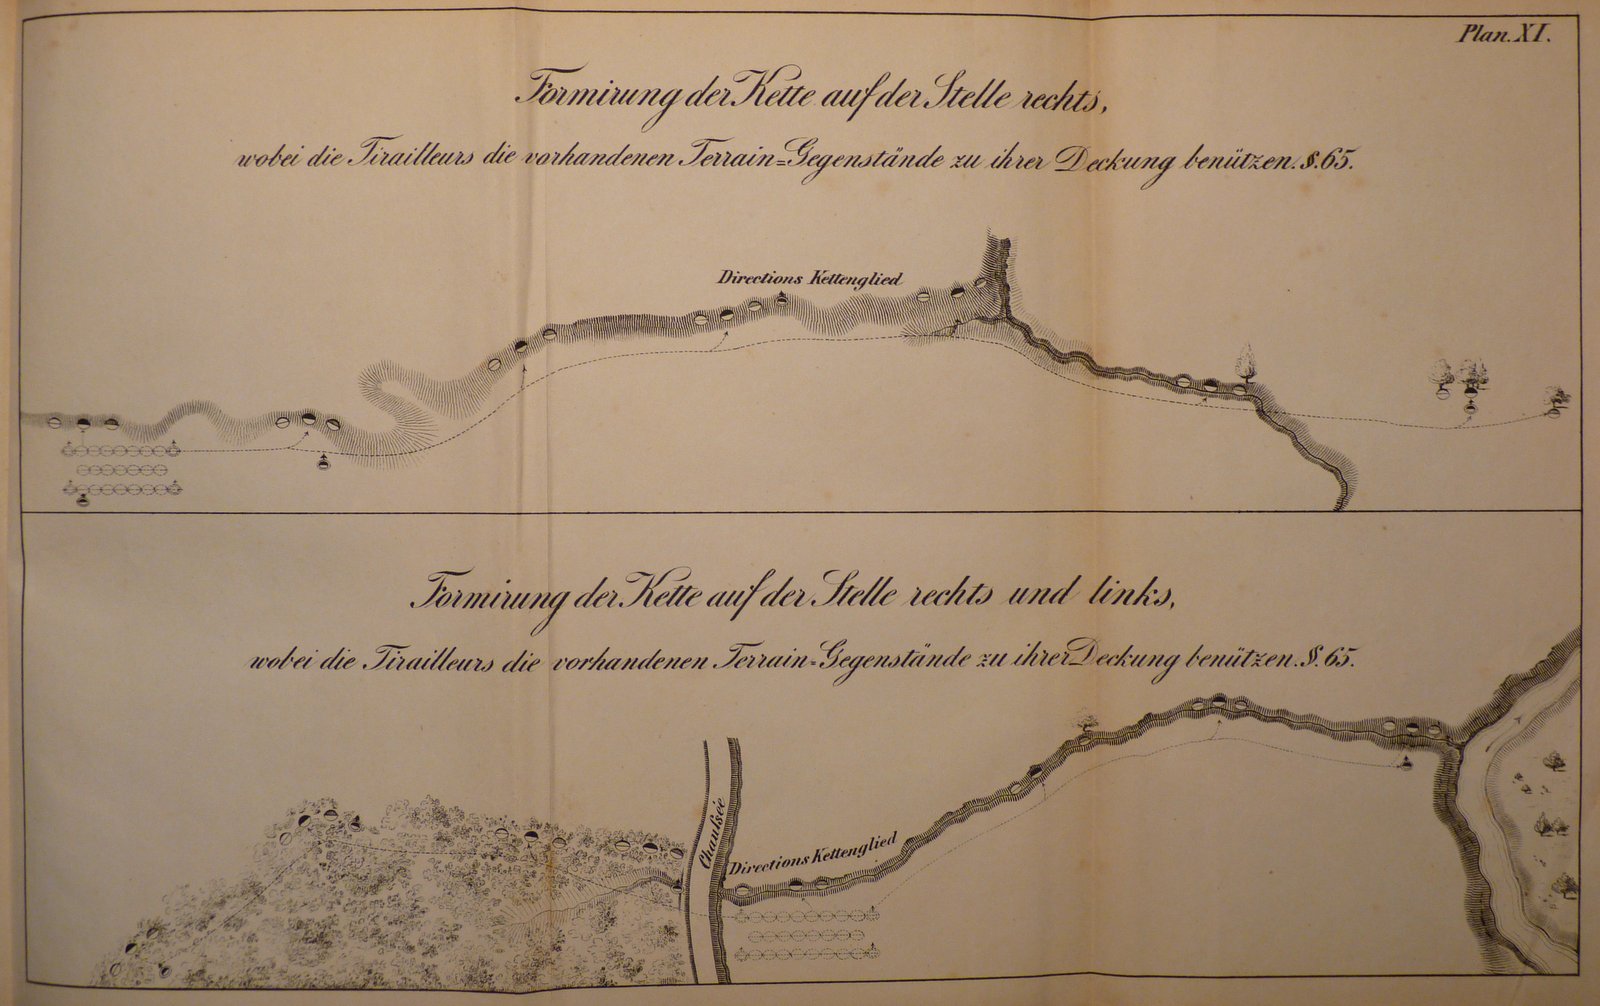 Plan. XI.
Formirung der Kette auf der Stelle rechts,
wobei die Tirailleurs die vorhandenen Terrain=Gegenstände zu ihrer Deckung benützen. §. 65.
Directions Kettenglied
Formirung der Kette auf der Stelle rechts und links,
wobei die Tirailleurs die vorhandenen Terrain=Gegenstände zu ihrer Deckung benützen. §. 65.
Chaussée
Directions Kettenglied